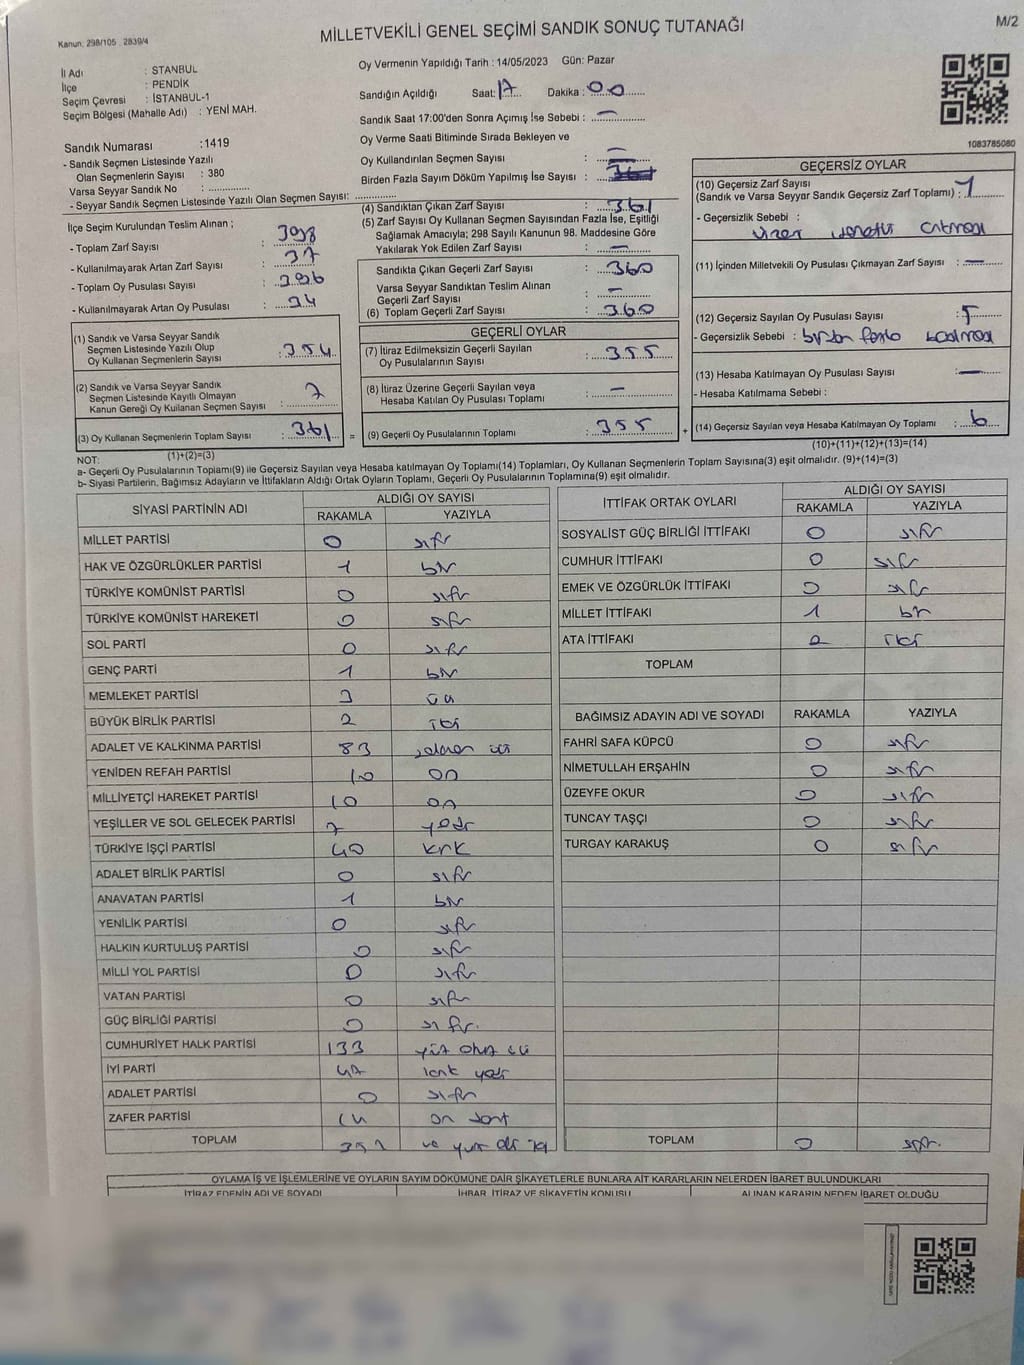 M/2
MİLLETVEKİLİ GENEL SEÇİMİ SANDIK SONUÇ TUTANAĞI
Kanun: 298/105 . 2839/4
İl Adı : STANBUL
İlçe : PENDİK
Seçim Çevresi : İSTANBUL-1
Seçim Bölgesi (Mahalle Adı) : YENİ MAH.
Oy Vermenin Yapıldığı Tarih : 14/05/2023 Gün: Pazar
Sandığın Açıldığı Saat: 17 Dakika : 00
Sandık Saat 17:00'den Sonra Açımış İse Sebebi : —
Oy Verme Saati Bitiminde Sırada Bekleyen ve
Oy Kullandırılan Seçmen Sayısı : —
Birden Fazla Sayım Döküm Yapılmış İse Sayısı :
1083785080
Sandık Numarası : 1419
- Sandık Seçmen Listesinde Yazılı
Olan Seçmenlerin Sayısı : 380
Varsa Seyyar Sandık No :
- Seyyar Sandık Seçmen Listesinde Yazılı Olan Seçmen Sayısı:
İlçe Seçim Kurulundan Teslim Alınan ;
- Toplam Zarf Sayısı : 398
- Kullanılmayarak Artan Zarf Sayısı : 37
- Toplam Oy Pusulası Sayısı :
- Kullanılmayarak Artan Oy Pusulası :
(1) Sandık ve Varsa Seyyar Sandık
Seçmen Listesinde Yazılı Olup
Oy Kullanan Seçmenlerin Sayısı : 354
(2) Sandık ve Varsa Seyyar Sandık
Seçmen Listesinde Kayıtlı Olmayan
Kanun Gereği Oy Kullanan Seçmen Sayısı : 7
(3) Oy Kullanan Seçmenlerin Toplam Sayısı : 361
(1)+(2)=(3)
(4) Sandıktan Çıkan Zarf Sayısı : 361
(5) Zarf Sayısı Oy Kullanan Seçmen Sayısından Fazla İse, Eşitliği
Sağlamak Amacıyla; 298 Sayılı Kanunun 98. Maddesine Göre
Yakılarak Yok Edilen Zarf Sayısı : —
Sandıkta Çıkan Geçerli Zarf Sayısı : 360
Varsa Seyyar Sandıktan Teslim Alınan
Geçerli Zarf Sayısı : —
(6) Toplam Geçerli Zarf Sayısı : 360
GEÇERLİ OYLAR
(7) İtiraz Edilmeksizin Geçerli Sayılan
Oy Pusulalarının Sayısı : 355
(8) İtiraz Üzerine Geçerli Sayılan veya
Hesaba Katılan Oy Pusulası Toplamı : —
= (9) Geçerli Oy Pusulalarının Toplamı : 355 +
GEÇERSİZ OYLAR
(10) Geçersiz Zarf Sayısı
(Sandık ve Varsa Seyyar Sandık Geçersiz Zarf Toplamı) : 1
- Geçersizlik Sebebi :
(11) İçinden Milletvekili Oy Pusulası Çıkmayan Zarf Sayısı : —
(12) Geçersiz Sayılan Oy Pusulası Sayısı : 5
- Geçersizlik Sebebi : birden fazla
(13) Hesaba Katılmayan Oy Pusulası Sayısı : —
- Hesaba Katılmama Sebebi :
(14) Geçersiz Sayılan veya Hesaba Katılmayan Oy Toplamı : 6
(10)+(11)+(12)+(13)=(14)
NOT:
a- Geçerli Oy Pusulalarının Toplamı(9) ile Geçersiz Sayılan veya Hesaba katılmayan Oy Toplamı(14) Toplamları, Oy Kullanan Seçmenlerin Toplam Sayısına(3) eşit olmalıdır. (9)+(14)=(3)
b- Siyasi Partilerin, Bağımsız Adayların ve İttifakların Aldığı Ortak Oyların Toplamı, Geçerli Oy Pusulalarının Toplamına(9) eşit olmalıdır.
SİYASİ PARTİNİN ADI ALDIĞI OY SAYISI
RAKAMLA YAZIYLA
MİLLET PARTİSİ 0 sıfır
HAK VE ÖZGÜRLÜKLER PARTİSİ 1 bir
TÜRKİYE KOMÜNİST PARTİSİ 0 sıfır
TÜRKİYE KOMÜNİST HAREKETİ 0 sıfır
SOL PARTİ 0 sıfır
GENÇ PARTİ 1 bir
MEMLEKET PARTİSİ 3 üç
BÜYÜK BİRLİK PARTİSİ 2 iki
ADALET VE KALKINMA PARTİSİ 83 seksen üç
YENİDEN REFAH PARTİSİ 10 on
MİLLİYETÇİ HAREKET PARTİSİ 10 on
YEŞİLLER VE SOL GELECEK PARTİSİ 7 yedi
TÜRKİYE İŞÇİ PARTİSİ 40 kırk
ADALET BİRLİK PARTİSİ 0 sıfır
ANAVATAN PARTİSİ 1 bir
YENİLİK PARTİSİ 0 sıfır
HALKIN KURTULUŞ PARTİSİ 0 sıfır
MİLLİ YOL PARTİSİ 0 sıfır
VATAN PARTİSİ 0 sıfır
GÜÇ BİRLİĞİ PARTİSİ 0 sıfır.
CUMHURİYET HALK PARTİSİ 133 yüz otuz üç
İYİ PARTİ 47 kırk yedi
ADALET PARTİSİ 0 sıfır
ZAFER PARTİSİ 14 on dört
TOPLAM 352 üç yüz elli iki
İTTİFAK ORTAK OYLARI ALDIĞI OY SAYISI
RAKAMLA YAZIYLA
SOSYALİST GÜÇ BİRLİĞİ İTTİFAKI 0 sıfır
CUMHUR İTTİFAKI 0 sıfır
EMEK VE ÖZGÜRLÜK İTTİFAKI 0 sıfır
MİLLET İTTİFAKI 1 bir
ATA İTTİFAKI 2 iki
TOPLAM
BAĞIMSIZ ADAYIN ADI VE SOYADI RAKAMLA YAZIYLA
FAHRİ SAFA KÜPCÜ 0 sıfır
NİMETULLAH ERŞAHİN 0 sıfır
ÜZEYFE OKUR 0 sıfır
TUNCAY TAŞÇI 0 sıfır
TURGAY KARAKUŞ 0 sıfır
TOPLAM 0 sıfır.
OYLAMA İŞ VE İŞLEMLERİNE VE OYLARIN SAYIM DÖKÜMÜNE DAİR ŞİKAYETLERLE BUNLARA AİT KARARLARIN NELERDEN İBARET BULUNDUKLARI
İTİRAZ EDENİN ADI VE SOYADI İHBAR, İTİRAZ VE ŞİKAYETİN KONUSU ALINAN KARARIN NEDEN İBARET OLDUĞU